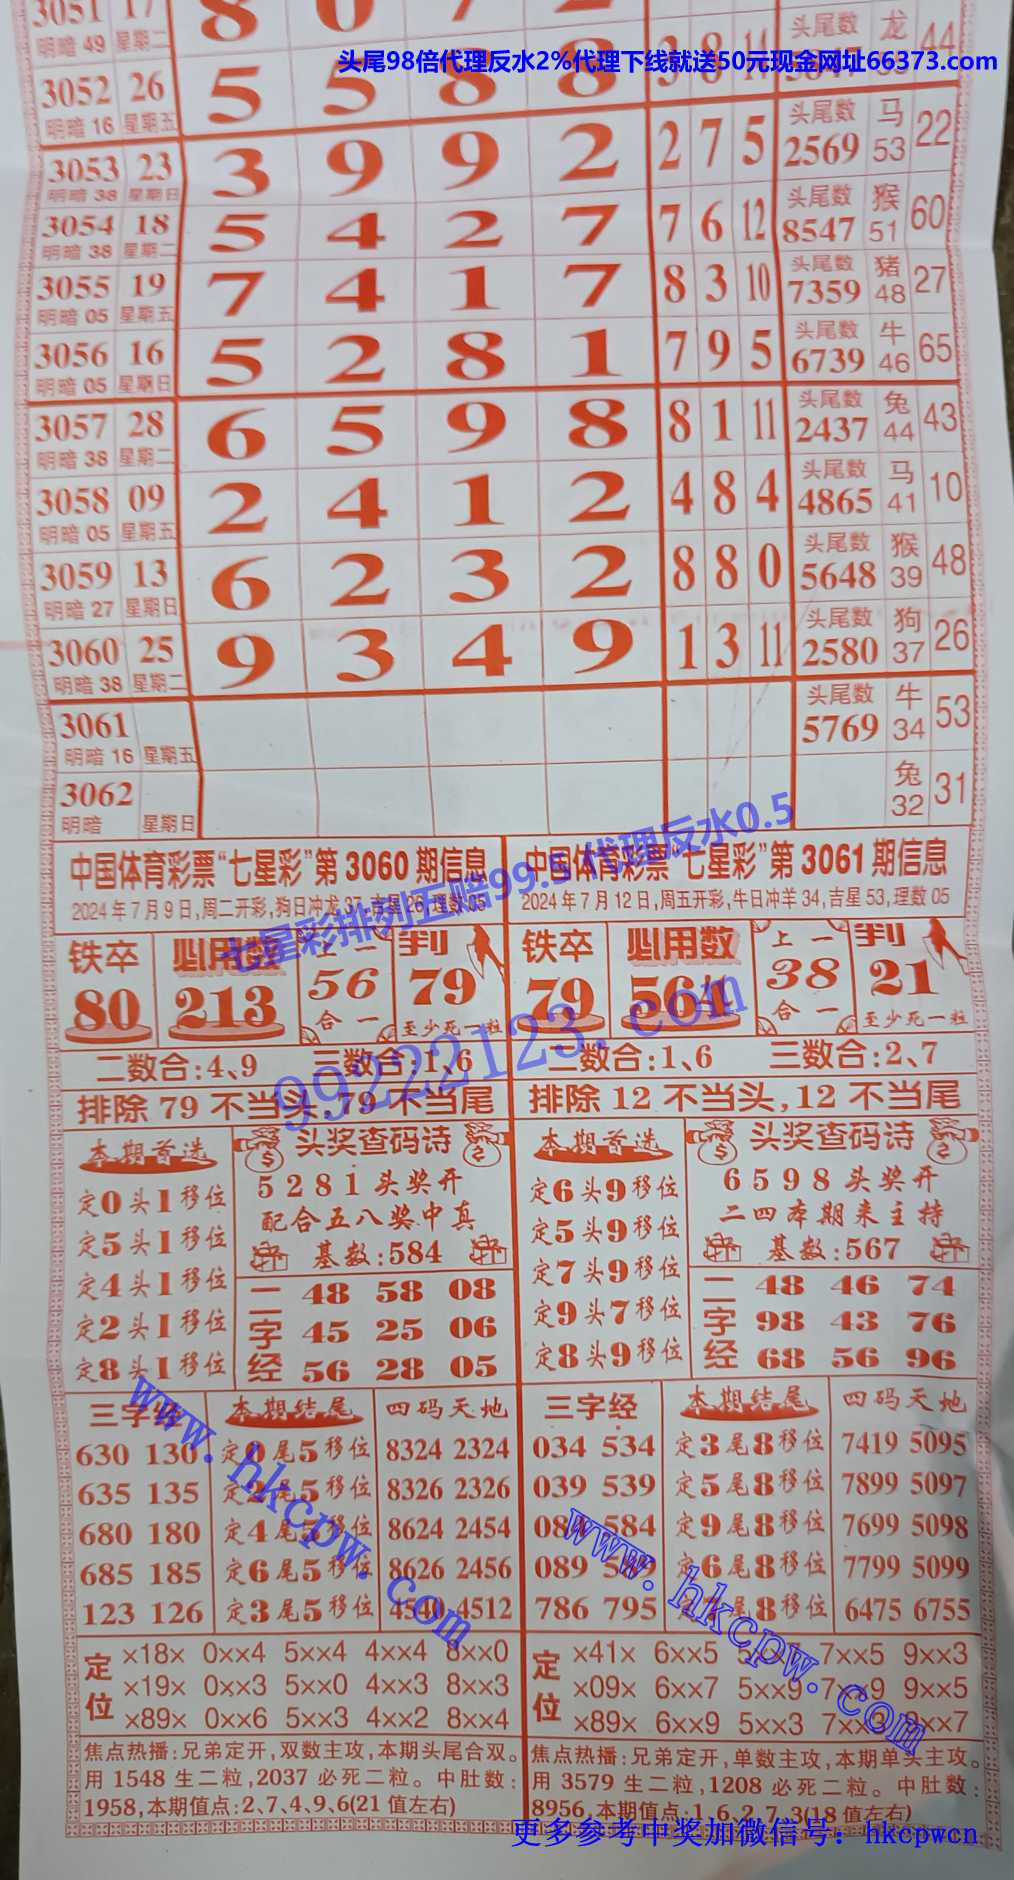 3051 17 8 0 7 2 头尾数 龙 44
明暗 49 星期二
头尾98倍代理反水2%代理下线就送50元现金网址66373.com
3052 26 5 5 8 8
明暗 16 星期五
3053 23 3 9 9 2 2 7 5 头尾数 2569 马 53 22
明暗 38 星期日
3054 18 5 4 2 7 7 6 12 头尾数 8547 猴 51 60
明暗 38 星期二
3055 19 7 4 1 7 8 3 10 头尾数 7359 猪 48 27
明暗 05 星期五
3056 16 5 2 8 1 7 9 5 头尾数 6739 牛 46 65
明暗 05 星期日
3057 28 6 5 9 8 8 1 11 头尾数 2437 兔 44 43
明暗 38 星期二
3058 09 2 4 1 2 4 8 4 头尾数 4865 马 41 10
明暗 05 星期五
3059 13 6 2 3 2 8 8 0 头尾数 5648 猴 39 48
明暗 27 星期日
3060 25 9 3 4 9 1 3 11 头尾数 2580 狗 37 26
明暗 38 星期二
3061 头尾数 5769 牛 34 53
明暗 16 星期五
3062 兔 32 31
明暗 星期日
七星彩排列五赔99.5 代理反水0.5
99222123.com
中国体育彩票“七星彩”第 3060 期信息
2024 年 7 月 9 日,周二开彩,狗日冲龙 37,吉星 26,理数 05
铁卒 80
必用数 213
上一 56 合一
判 79 至少死一粒
二数合:4、9 三数合:1、6
排除 79 不当头,79 不当尾
本期首选
定0头1移位
定5头1移位
定4头1移位
定2头1移位
定8头1移位
头奖查码诗
5281头奖开
配合五八奖中真
基数:584
二字经
48 58 08
45 25 06
56 28 05
三字经
630 130
635 135
680 180
685 185
123 126
本期结尾
定0尾5移位
定2尾5移位
定4尾5移位
定6尾5移位
定3尾5移位
四码天地
8324 2324
8326 2326
8624 2454
8626 2456
4540 4512
定位
×18× 0××4 5××4 4××4 8××0
×19× 0××3 5××0 4××3 8××3
×89× 0××6 5××3 4××2 8××4
焦点热播:兄弟定开,双数主攻,本期头尾合双。
用 1548 生二粒,2037 必死二粒。中肚数:
1958,本期值点:2、7、4、9、6(21 值左右)
中国体育彩票“七星彩”第 3061 期信息
2024 年 7 月 12 日,周五开彩,牛日冲羊 34,吉星 53,理数 05
铁卒 79
必用数 564
上一 38 合一
判 21 至少死一粒
二数合:1、6 三数合:2、7
排除 12 不当头,12 不当尾
本期首选
定6头9移位
定5头9移位
定7头9移位
定9头7移位
定8头9移位
头奖查码诗
6598头奖开
二四本期来主持
基数:567
二字经
48 46 74
98 43 76
68 56 96
三字经
034 534
039 539
084 584
089 589
786 795
本期结尾
定3尾8移位
定5尾8移位
定9尾8移位
定6尾8移位
定7尾8移位
四码天地
7419 5095
7899 5097
7699 5098
7799 5099
6475 6755
定位
×41× 6××5 7××5 9××3
×09× 6××7 5××9 7××9 9××5
×89× 6××9 5××3 7××3 9××7
焦点热播:兄弟定开,单数主攻,本期单头主攻。
用 3579 生二粒,1208 必死二粒。中肚数:
8956,本期值点:1、6、2、7、3(18 值左右)
www.hkcpw.com
www.hkcpw.com
更多参考中奖加微信号：hkcpwcn